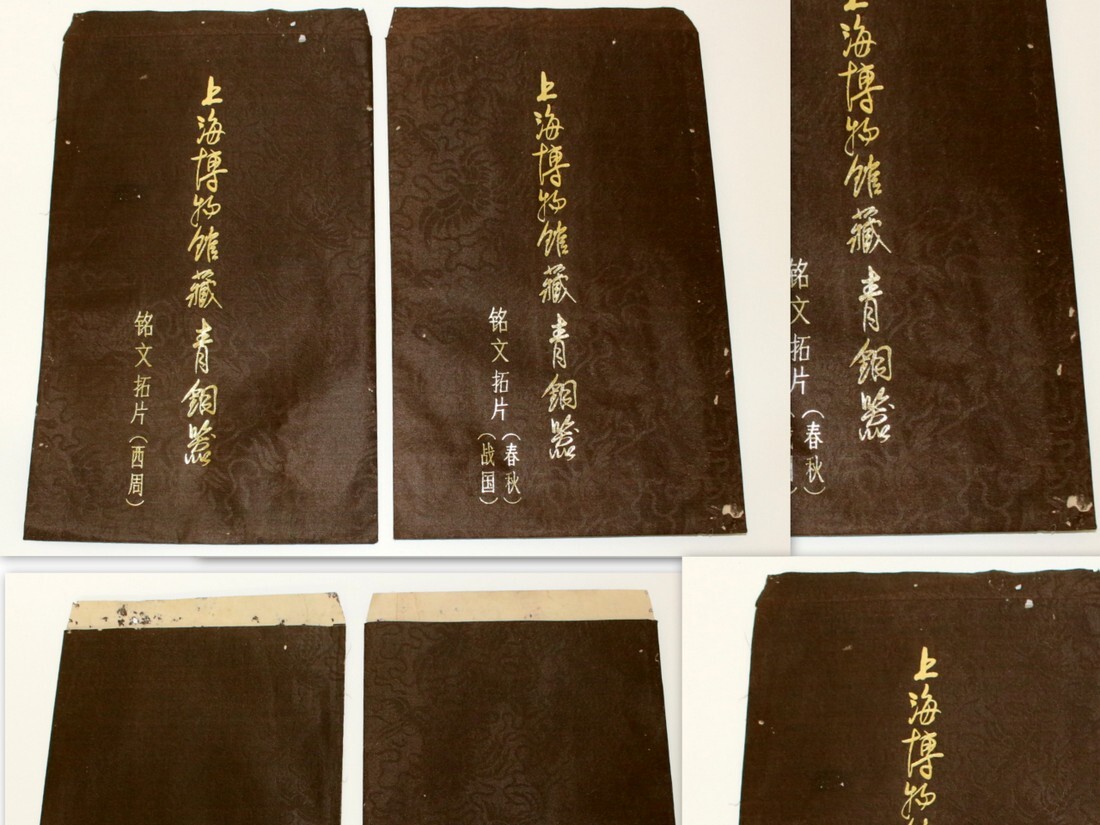 上海博物馆藏青铜器
铭文拓片(西周)
上海博物馆藏青铜器
铭文拓片(春秋)
(战国)
上海博物馆藏青铜器
铭文拓片(春秋)
(战国)
上海博物